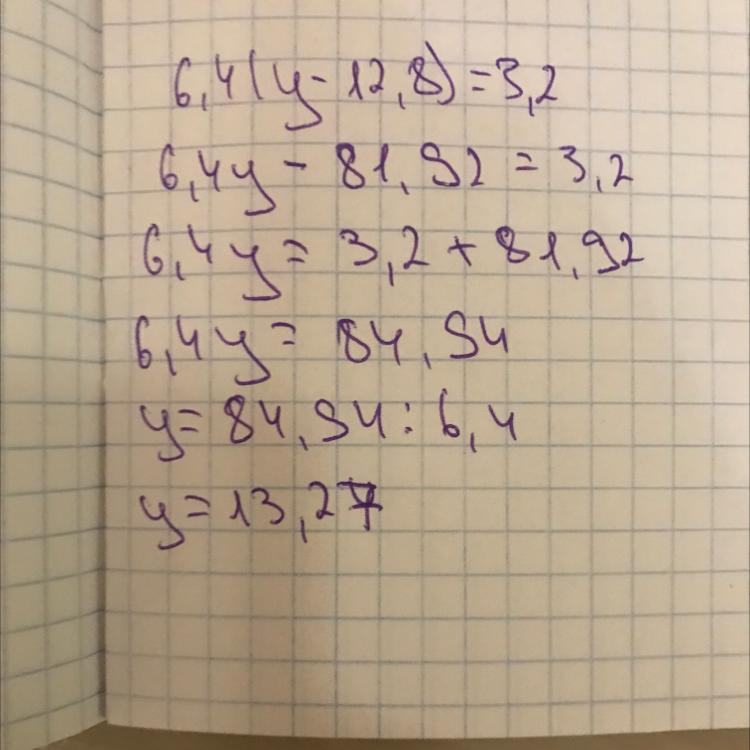 6,4(y-12,8)=3,2
6,4y - 81,92 = 3,2
6,4y = 3,2 + 81,92
6,4y = 84,94
y = 84,94 : 6,4
y = 13,27